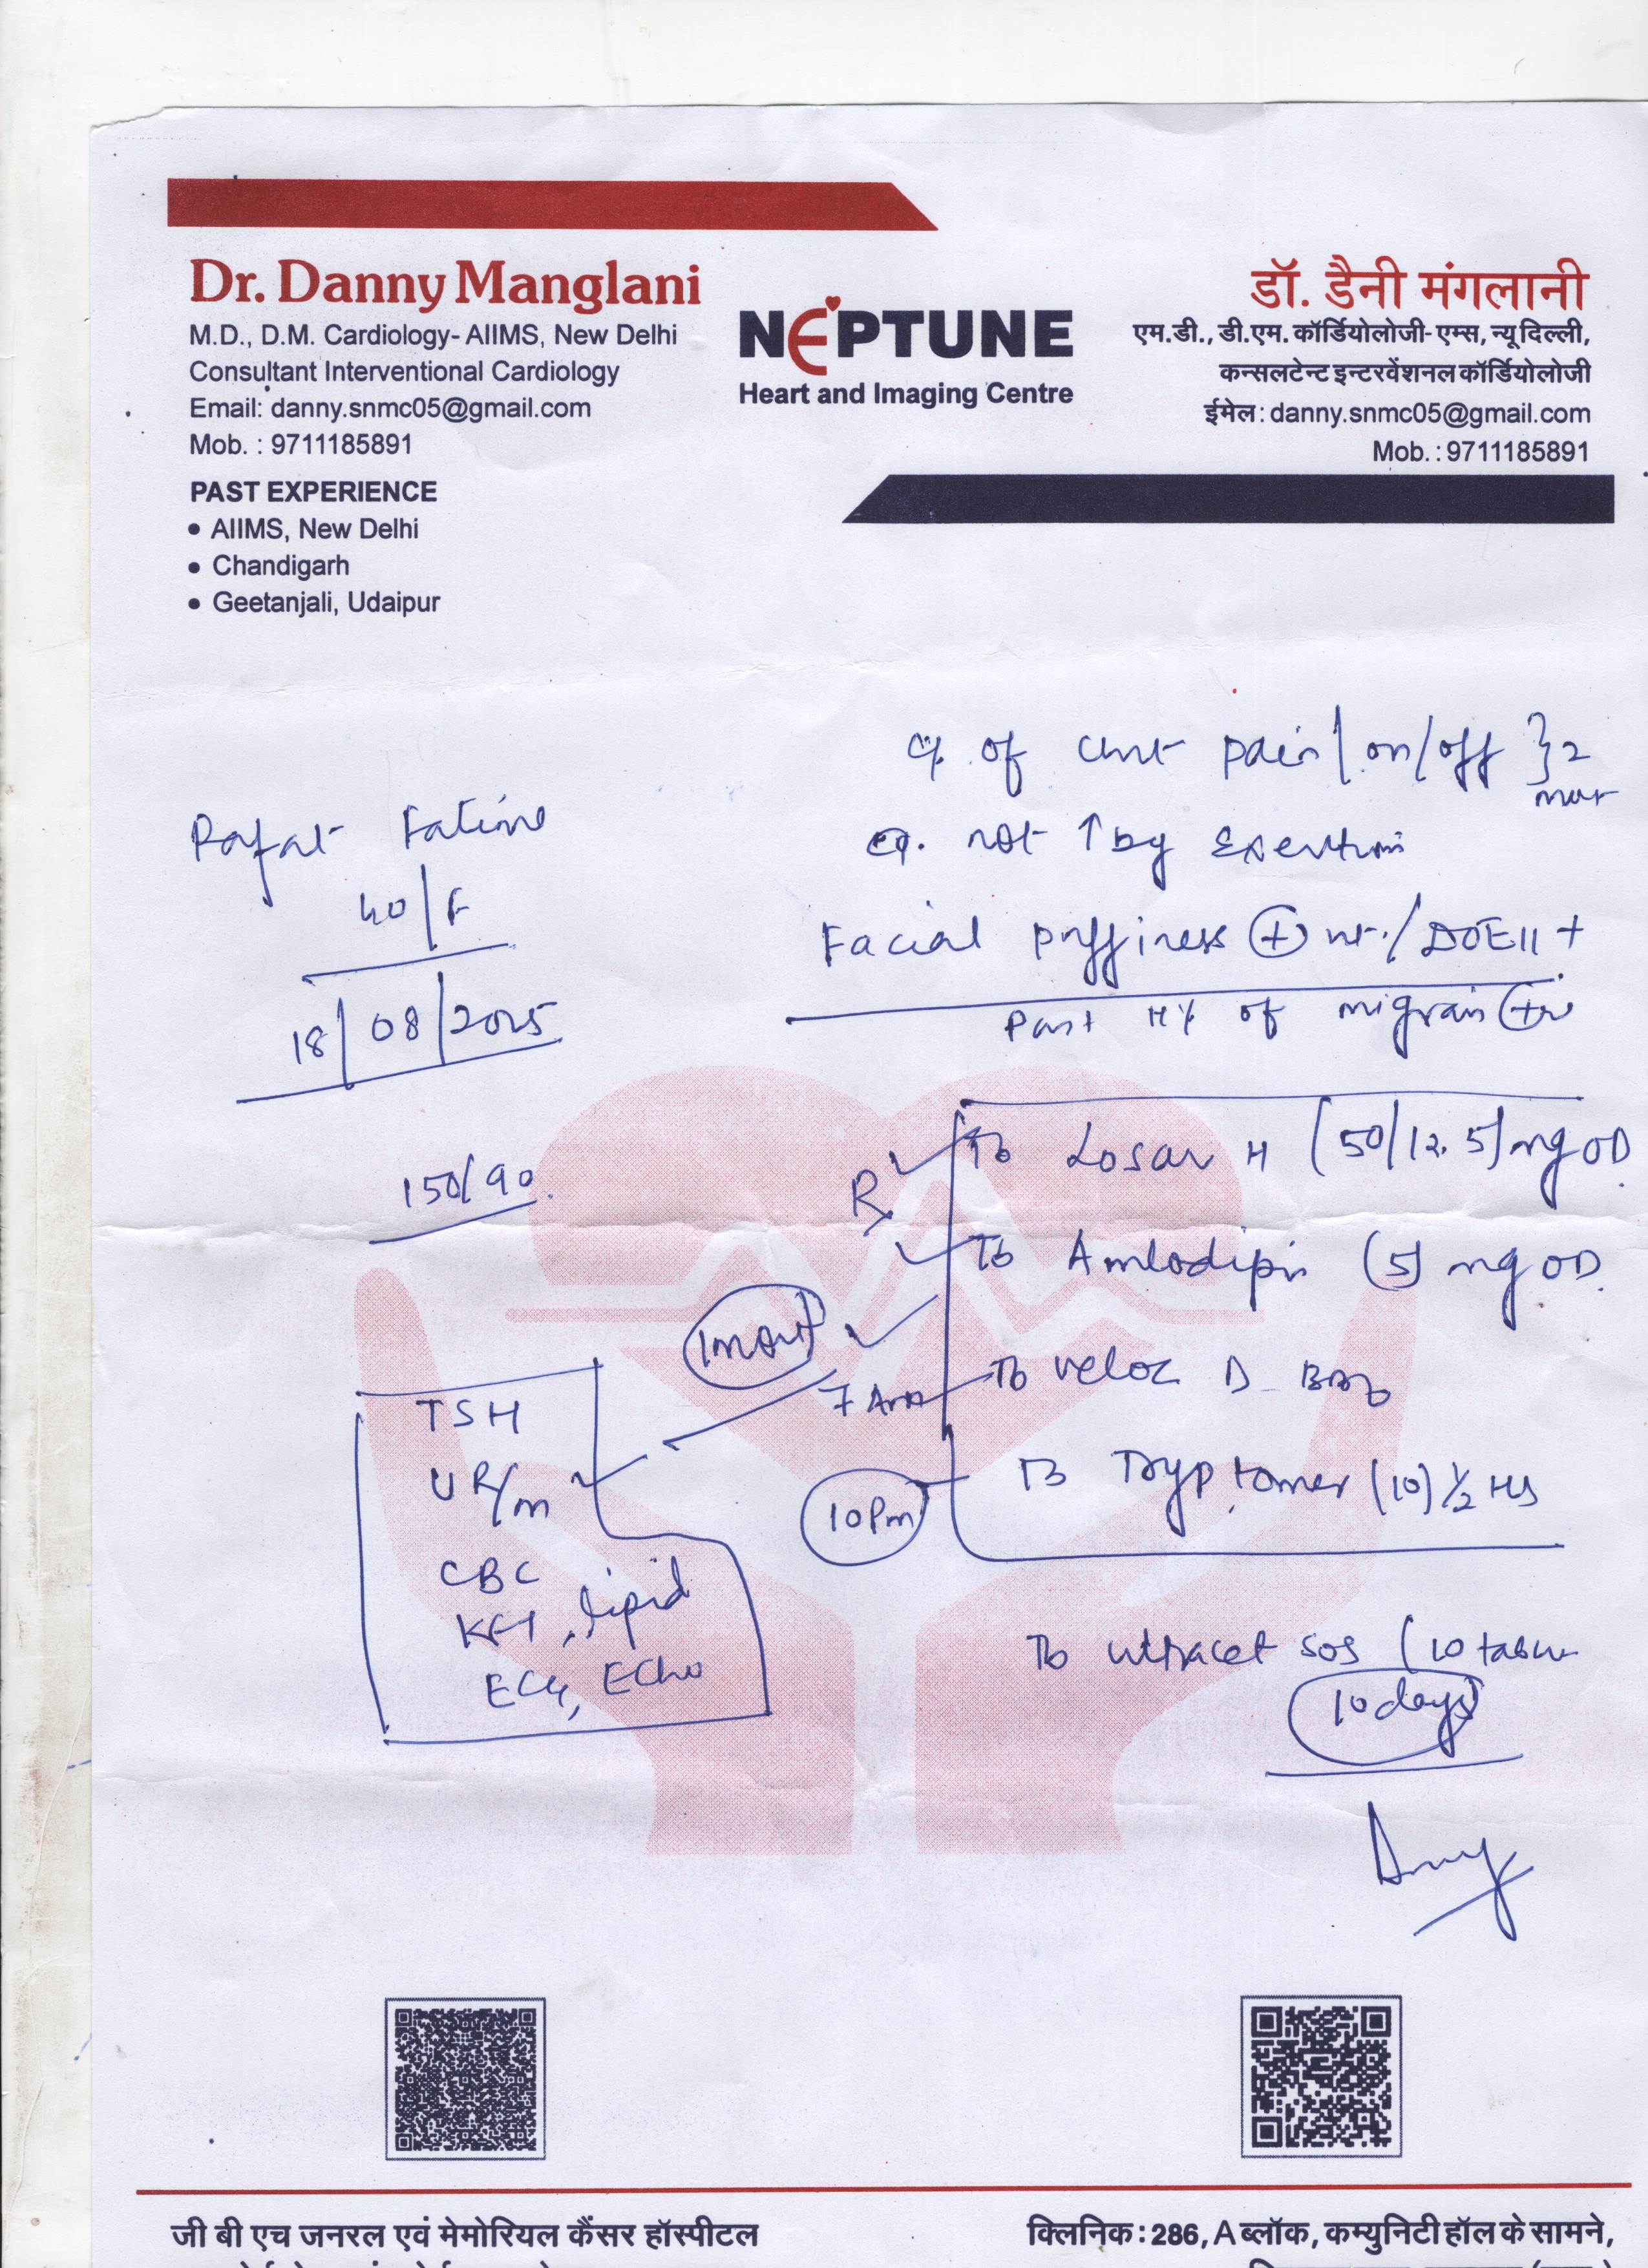 Dr. Danny Manglani
M.D., D.M. Cardiology- AIIMS, New Delhi
Consultant Interventional Cardiology
Email: danny.snmc05@gmail.com
Mob. : 9711185891
PAST EXPERIENCE
• AIIMS, New Delhi
• Chandigarh
• Geetanjali, Udaipur
NEPTUNE
Heart and Imaging Centre
डॉ. डैनी मंगलानी
एम.डी., डी.एम. कॉर्डियोलोजी- एम्स, न्यू दिल्ली,
कन्सलटेन्ट इन्टरवेंशनल कॉर्डियोलोजी
ईमेल : danny.snmc05@gmail.com
Mob. : 9711185891
Rafat Fatima
40/F
18/08/2025
150/90
of chest pain (on/off } 2
not ↑ by Exertion
Facial Puffiness (+) / DOE II +
Past H/o of migrain (+)
Rx
Tb Losar H (50/12.5) mg OD
Tb Amlodipin (5) mg OD
1 month
7 Am Tb Veloz D BBF
10 Pm Tb Tryptomer (10) 1/2 HS
TSH
U R/m
CBC
KFT, lipid
ECG, ECho
Tb Ultracet SOS (10 tablet
10 days
जी बी एच जनरल एवं मेमोरियल कैंसर हॉस्पीटल
क्लिनिक : 286, A ब्लॉक, कम्युनिटी हॉल के सामने,